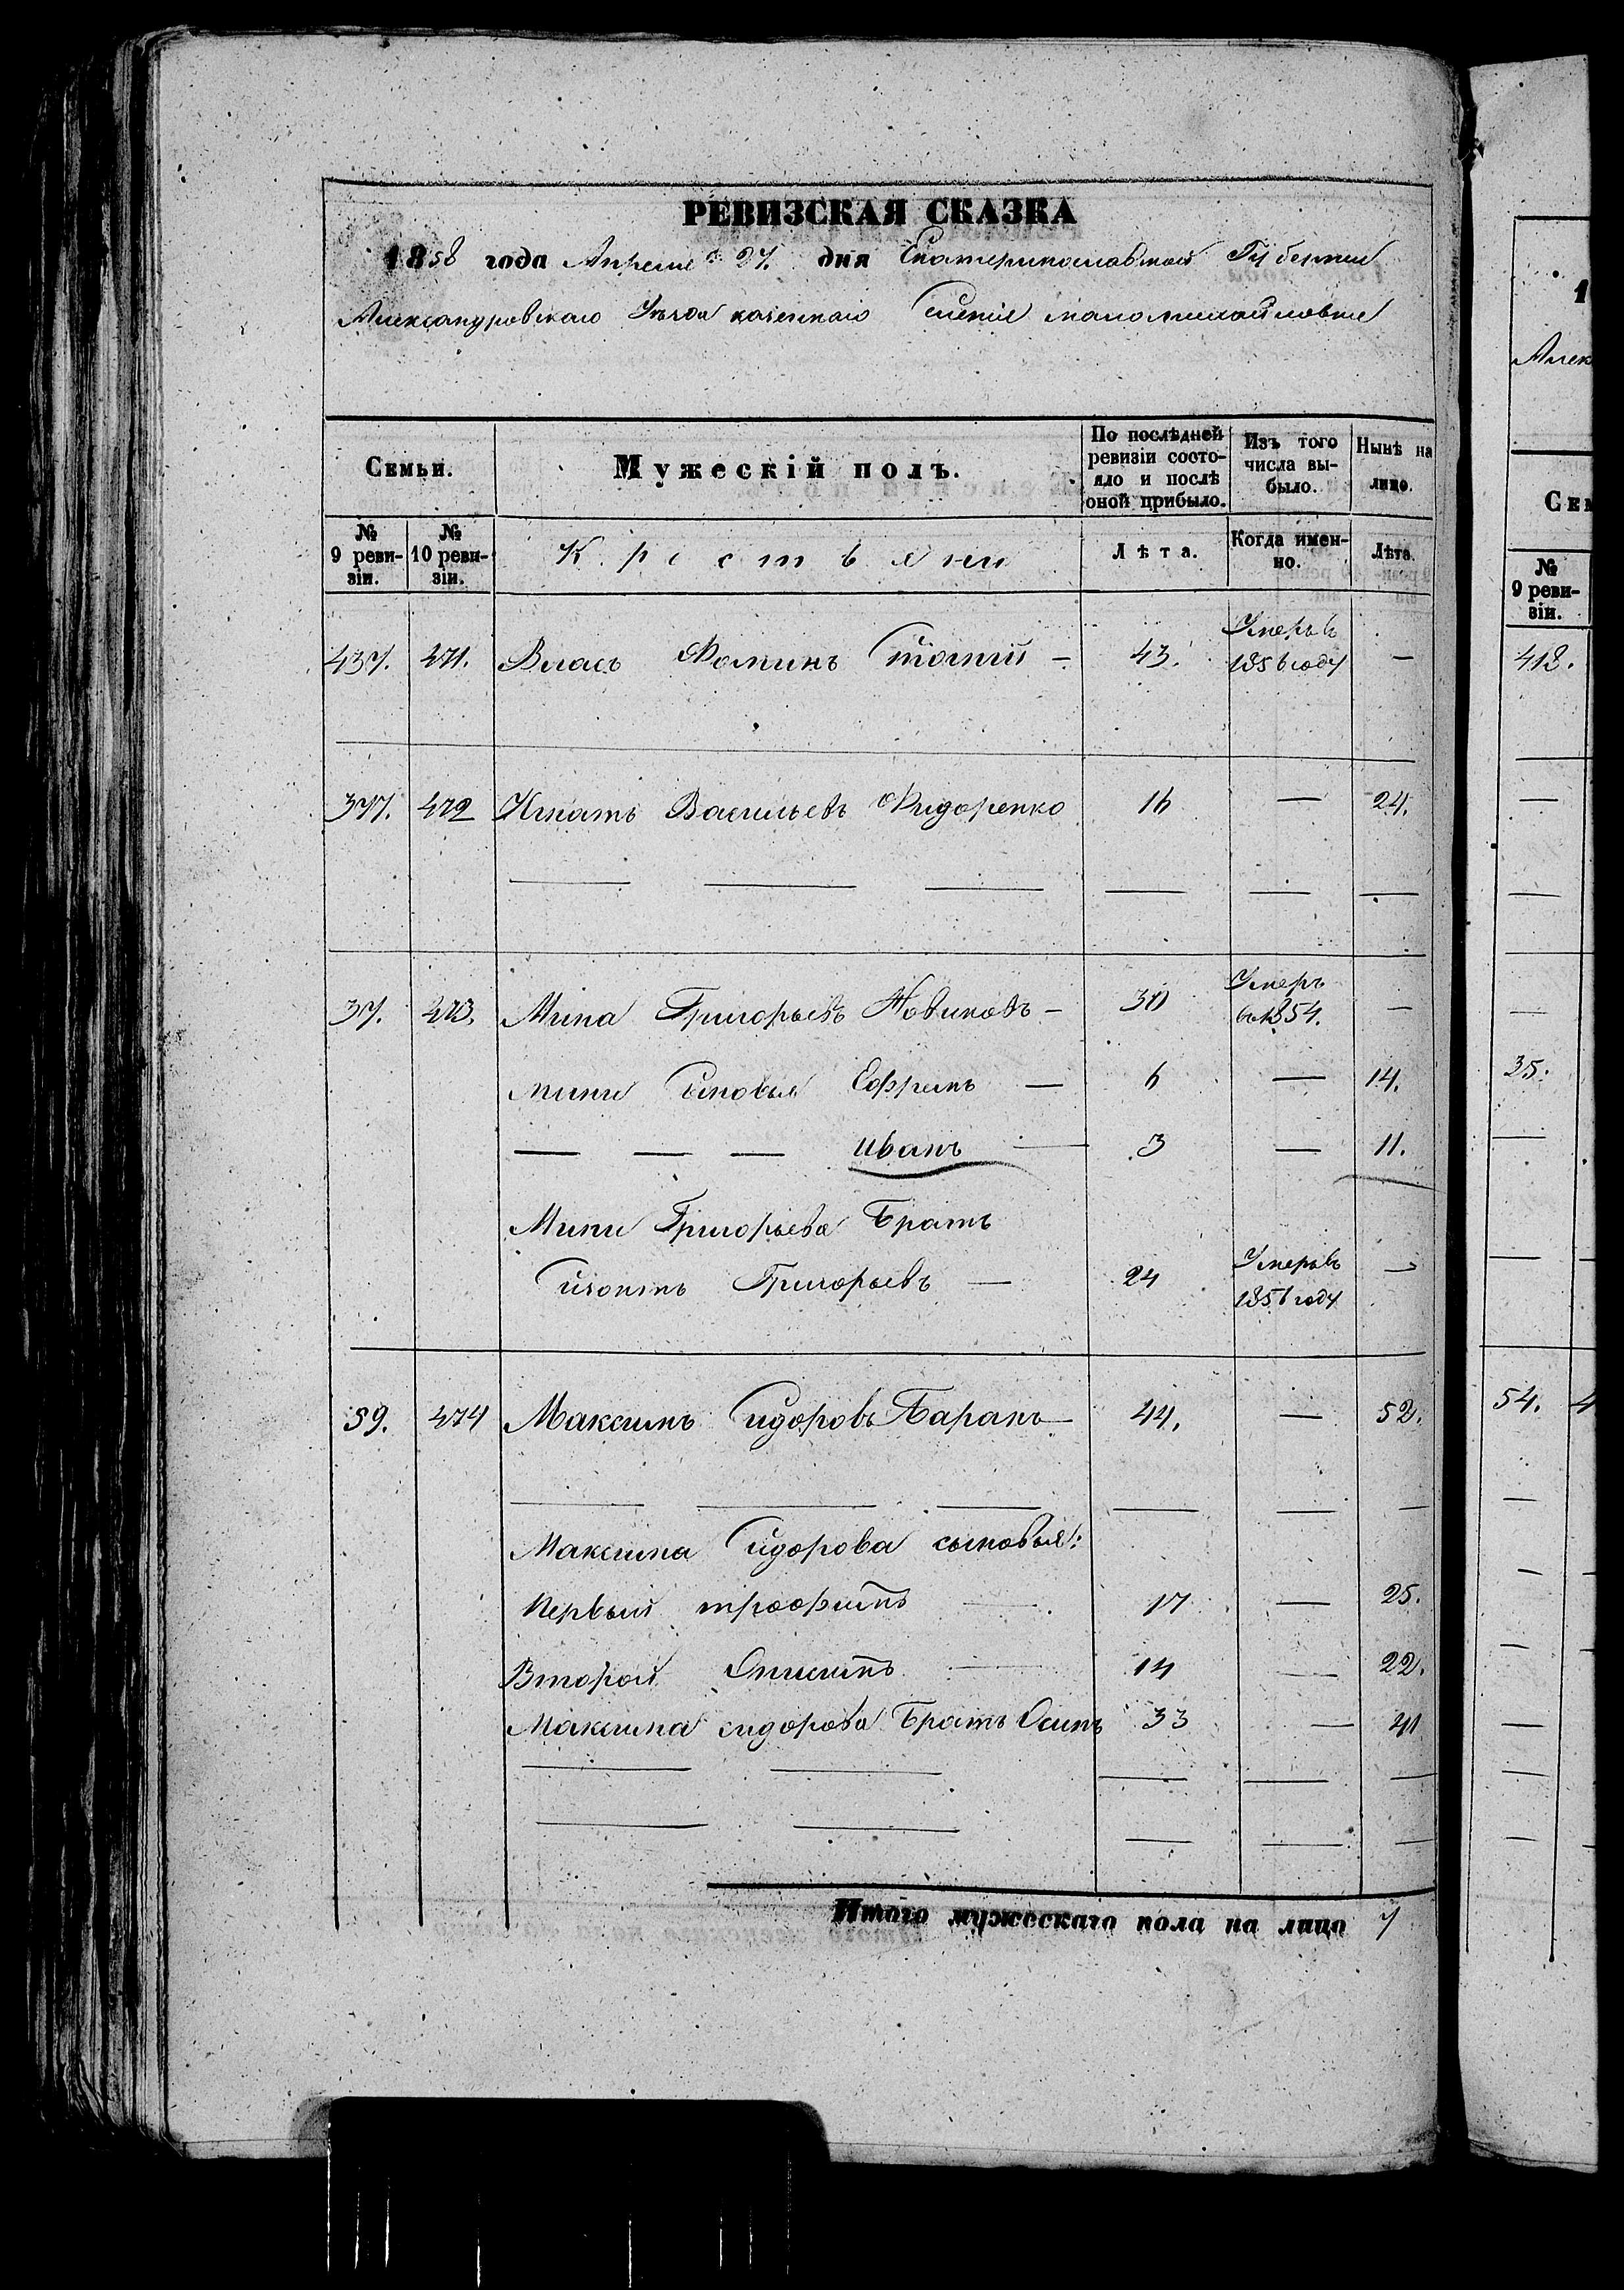 РЕВИЗСКАЯ СКАЗКА
1858 года Апреля 27. дня Екатеринославской Губернии
Александровскаго Уѣзда казеннаго Селенія маломихайловки
Семьи. Мужескій полъ. По послѣдней ревизіи состояло и послѣ оной прибыло. Изъ того числа выбыло. Нынѣ на лицо.
№ 9 ревизіи. № 10 ревизіи. Крестьяни Лѣта. Когда именно. Лѣта.
437. 471. Власъ Фоминъ 43. Умеръ в 1856 году —
377. 472 Игнатъ Васильевъ Фидоренко 16 — 24.
37. 473. Мина Григорьевъ Новиковъ — 30 Умеръ в 1854. —
мини Сыновья Ефримъ — 6 — 14.
— — — иванъ — 3 — 11.
Мини Григорьева Братъ
Григорьевъ — 24 Умеръ в 1856 году —
59. 474 Максимъ Сидоровъ Баранъ — 44. — 52.
Максима Сидорова сыновья:
Первый трофимъ — 17 — 25.
Второй Онисимъ — 14 — 22.
Максима сидорова Братъ Осипъ 33 — 41
Итого мужескаго пола на лицо 7
1
Алек
Сем
№ 9 ревизіи.
418.
35.
54. 4